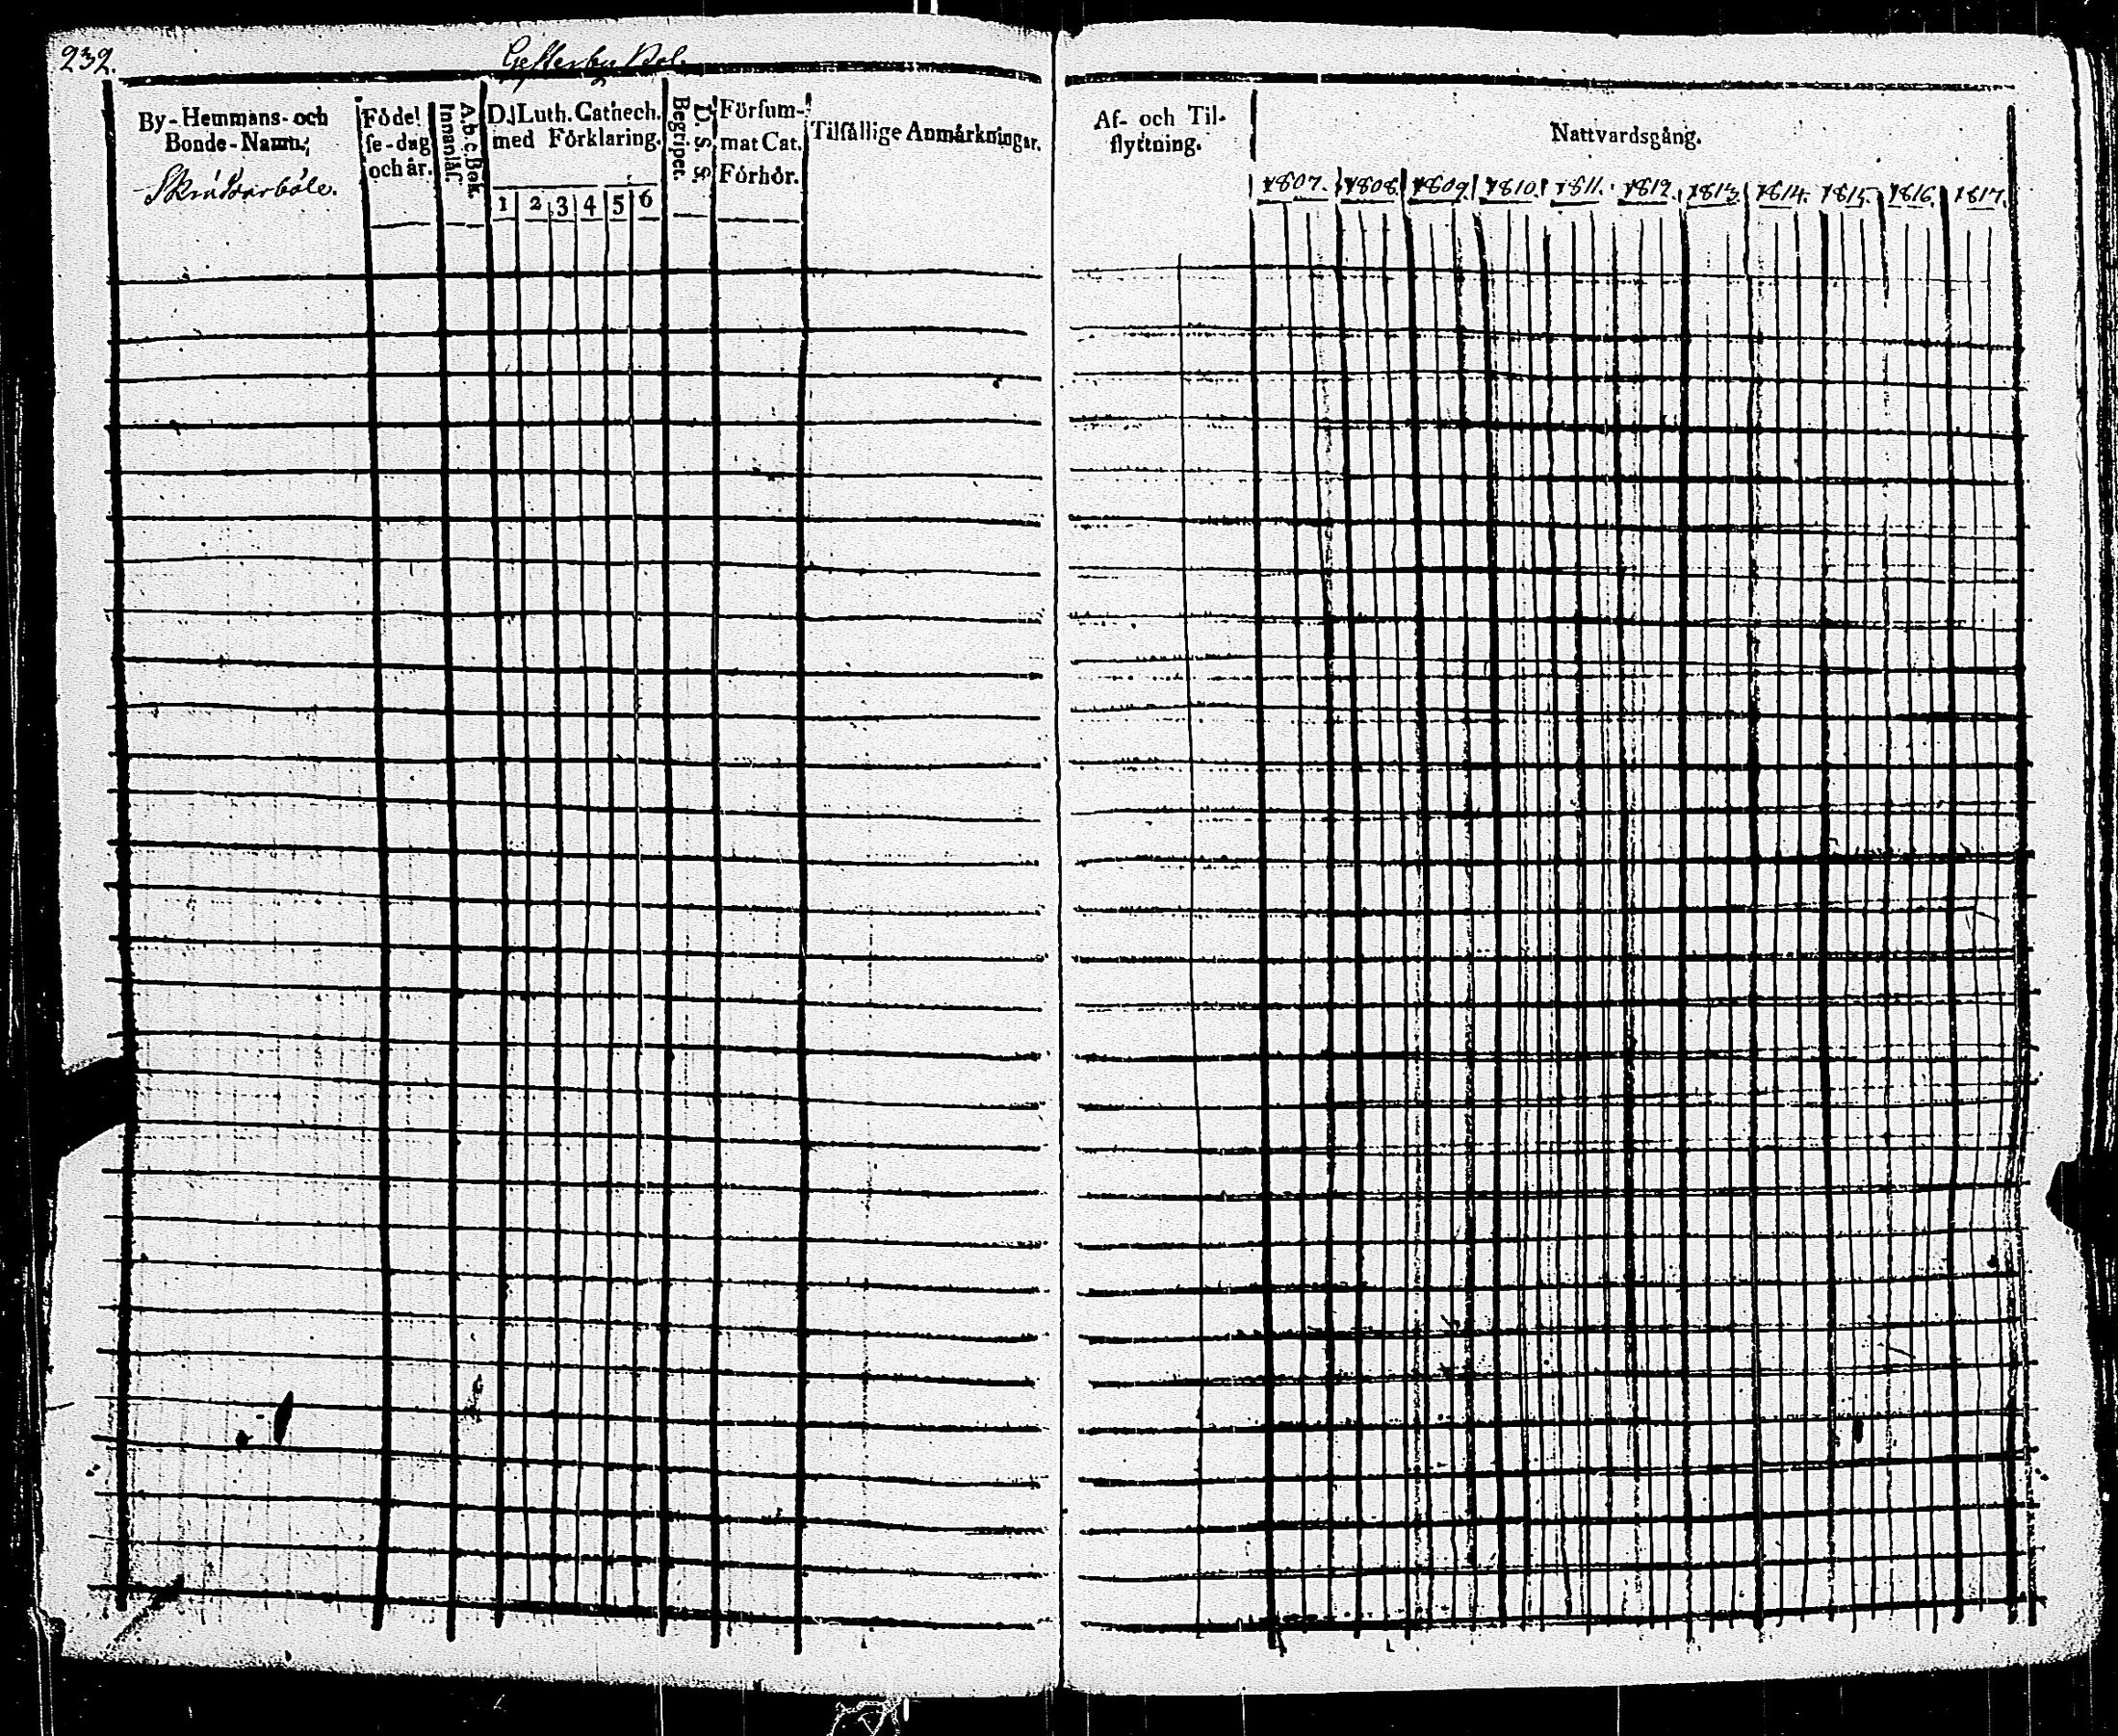 232.
Gesterby Bol.
By-Hemmans-och
Bonde-Namn;
Födel
se-dag
och år.
A.b.c.Bok.
Innanläs.
D. Luth. Cathech.
med Förklaring.
1 2 3 4 5 6
D. S. S.
Begripet.
Försum-
mat Cat.
Förhör.
Tilfällige Anmärkningar.
Af- och Til-
flyttning.
Nattvardsgång.
1807. 1808. 1809. 1810. 1811. 1812. 1813. 1814. 1815. 1816. 1817.